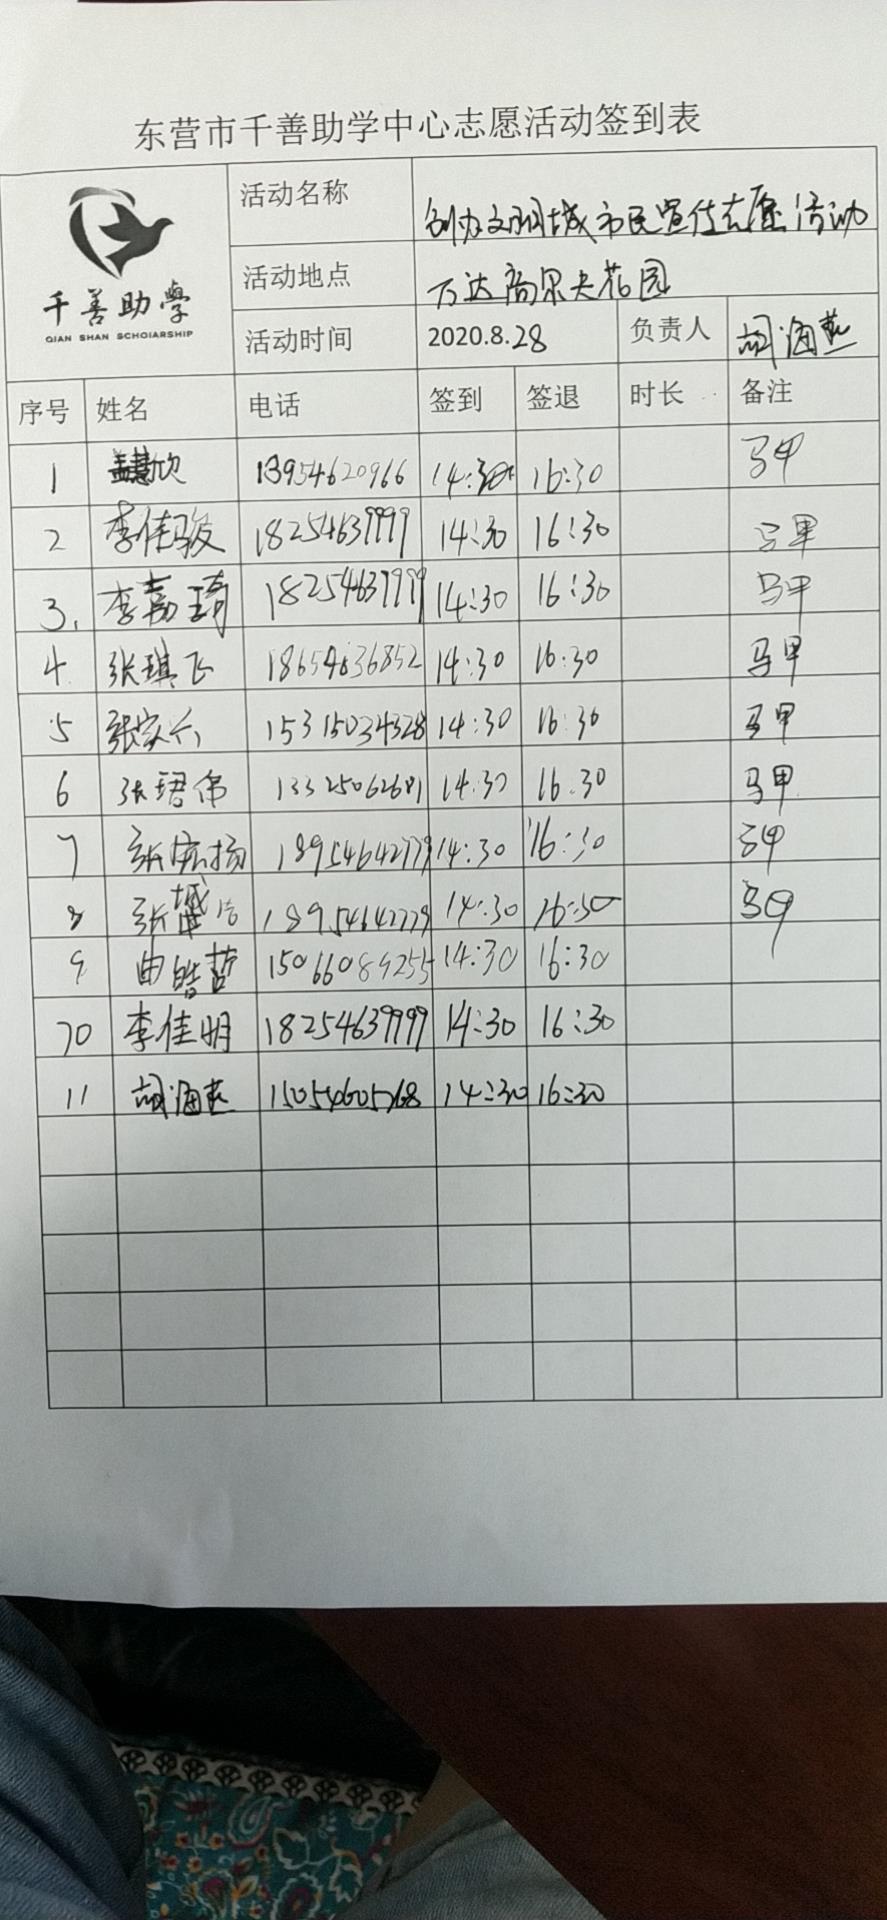 东营市千善助学中心志愿活动签到表
千善助學
QIAN SHAN SCHOIARSHIP
活动名称 创办文明城市民宣传志愿活动
活动地点 万达高尔夫花园
活动时间 2020.8.28 负责人 胡海燕
序号 姓名 电话 签到 签退 时长 备注
1 13954620966 14:30 16:30 马甲
2 李佳骏 18254639999 14:30 16:30 马甲
3. 李嘉琦 18254639999 14:30 16:30 马甲
4 张琪飞 18654636852 14:30 16:30 马甲
5 15315034328 14:30 16:30 马甲
6 张珺伟 13325062681 14:30 16:30 马甲
7 张宏扬 18954642779 14:30 16:30 马甲
8 18954642779 14:30 16:30 马甲
9 曲皓哲 15066089255 14:30 16:30
10 李佳明 18254639999 14:30 16:30
11 胡海燕 15054605768 14:30 16:30